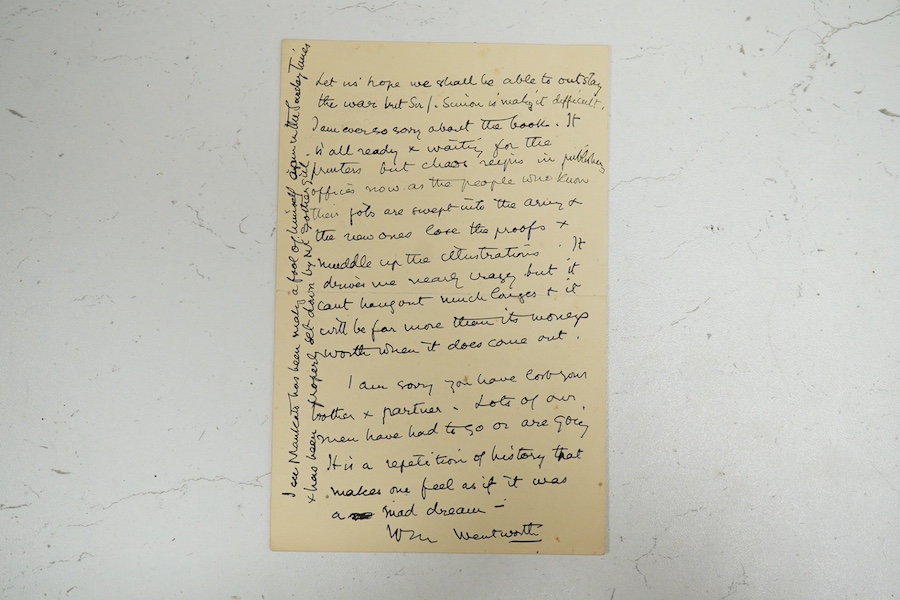 Let us hope we shall be able to outstay
the war but Sir J. Simon is making it difficult.
I am ever so sorry about the book. It
is all ready & waiting for the
printers but chaos reigns in publishing
offices now as the people who know
their jobs are swept into the army &
the new ones lose the proofs &
muddle up the illustrations. It
drives me nearly crazy but it
cant hang out much longer & it
will be far more than its moneys
worth when it does come out.
I am sorry you have lost your
brother & partner. Lots of our
men have had to go or are going
It is a repetition of history that
makes one feel as if it was
a mad dream –
Wm Wentworth
I see has been making a fool of himself again in the Sunday Times
& has been properly set down by Mr